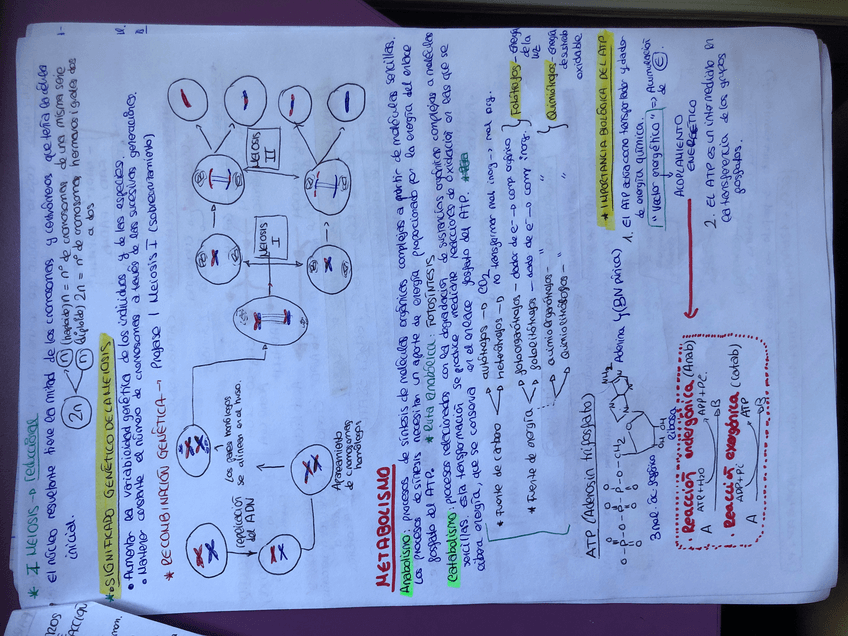 * I MEIOSIS → reduccional
El núcleo resultante tiene la mitad de los cromosomas y centrómeros que tenía la célula
inicial.
2n
n (haploide) n = nº de cromosomas de una misma serie
n (diploide) 2n = nº de cromosomas hermanos iguales dos
a dos
* SIGNIFICADO GENÉTICO DE LA MEIOSIS
• Aumentar la variabilidad genética de los individuos y de las especies.
• Mantener constante el número de cromosomas a través de las sucesivas generaciones.
* RECOMBINACIÓN GENÉTICA → Profase I Meiosis I (sobrecruzamiento)
replicación
del ADN
Apareamiento
de cromosomas
homólogos
Los pares homólogos
se alinean en el huso.
MEIOSIS
I
MEIOSIS
II
METABOLISMO
Anabolismo: procesos de síntesis de moléculas orgánicas complejas a partir de moléculas sencillas.
Los procesos de síntesis necesitan un aporte de energía proporcionado por la energía del enlace
fosfato del ATP. * Ruta anabólica: FOTOSÍNTESIS
Catabolismo: procesos relacionados con la degradación de sustancias orgánicas complejas a moléculas
sencillas. esta transformación se produce mediante reacciones de oxidación en las que se
libera energía, que se conserva en el enlace fosfato del ATP.
* Fuente de carbono
autótrofos → CO2
heterótrofos → no transformar mat. inorg → mat org.
* Fuente de energía
fotoorganótrofos - dador de e- → comp orgánico
fotolitótrofos - dador de e- → comp inorg.
quimiorganótrofos - " "
quimiolitótrofos - " "
Fotótrofos - energía
de la
luz
Quimiótrofos - energía
de sustrato
oxidable
ATP (Adenosin trifosfato)
O-P-O-P-O-P-O-CH2
NH2
Adenina γ (BN púrica)
3 mol. ác fosfórico
Ribosa
* IMPORTANCIA BIOLÓGICA DEL ATP
1. El ATP actúa como transportador y dador
de energía química.
"Vector energético" => Acumulación
de E.
ACOPLAMIENTO
ENERGÉTICO
2. El ATP es un intermediario en
la transferencia de los grupos
fosfatos.
. Reacción endergónica (Anab)
ATP+H2O APP+Pi.
A B
. Reacción exergónica (Catab)
ADP+Pi ATP
A B